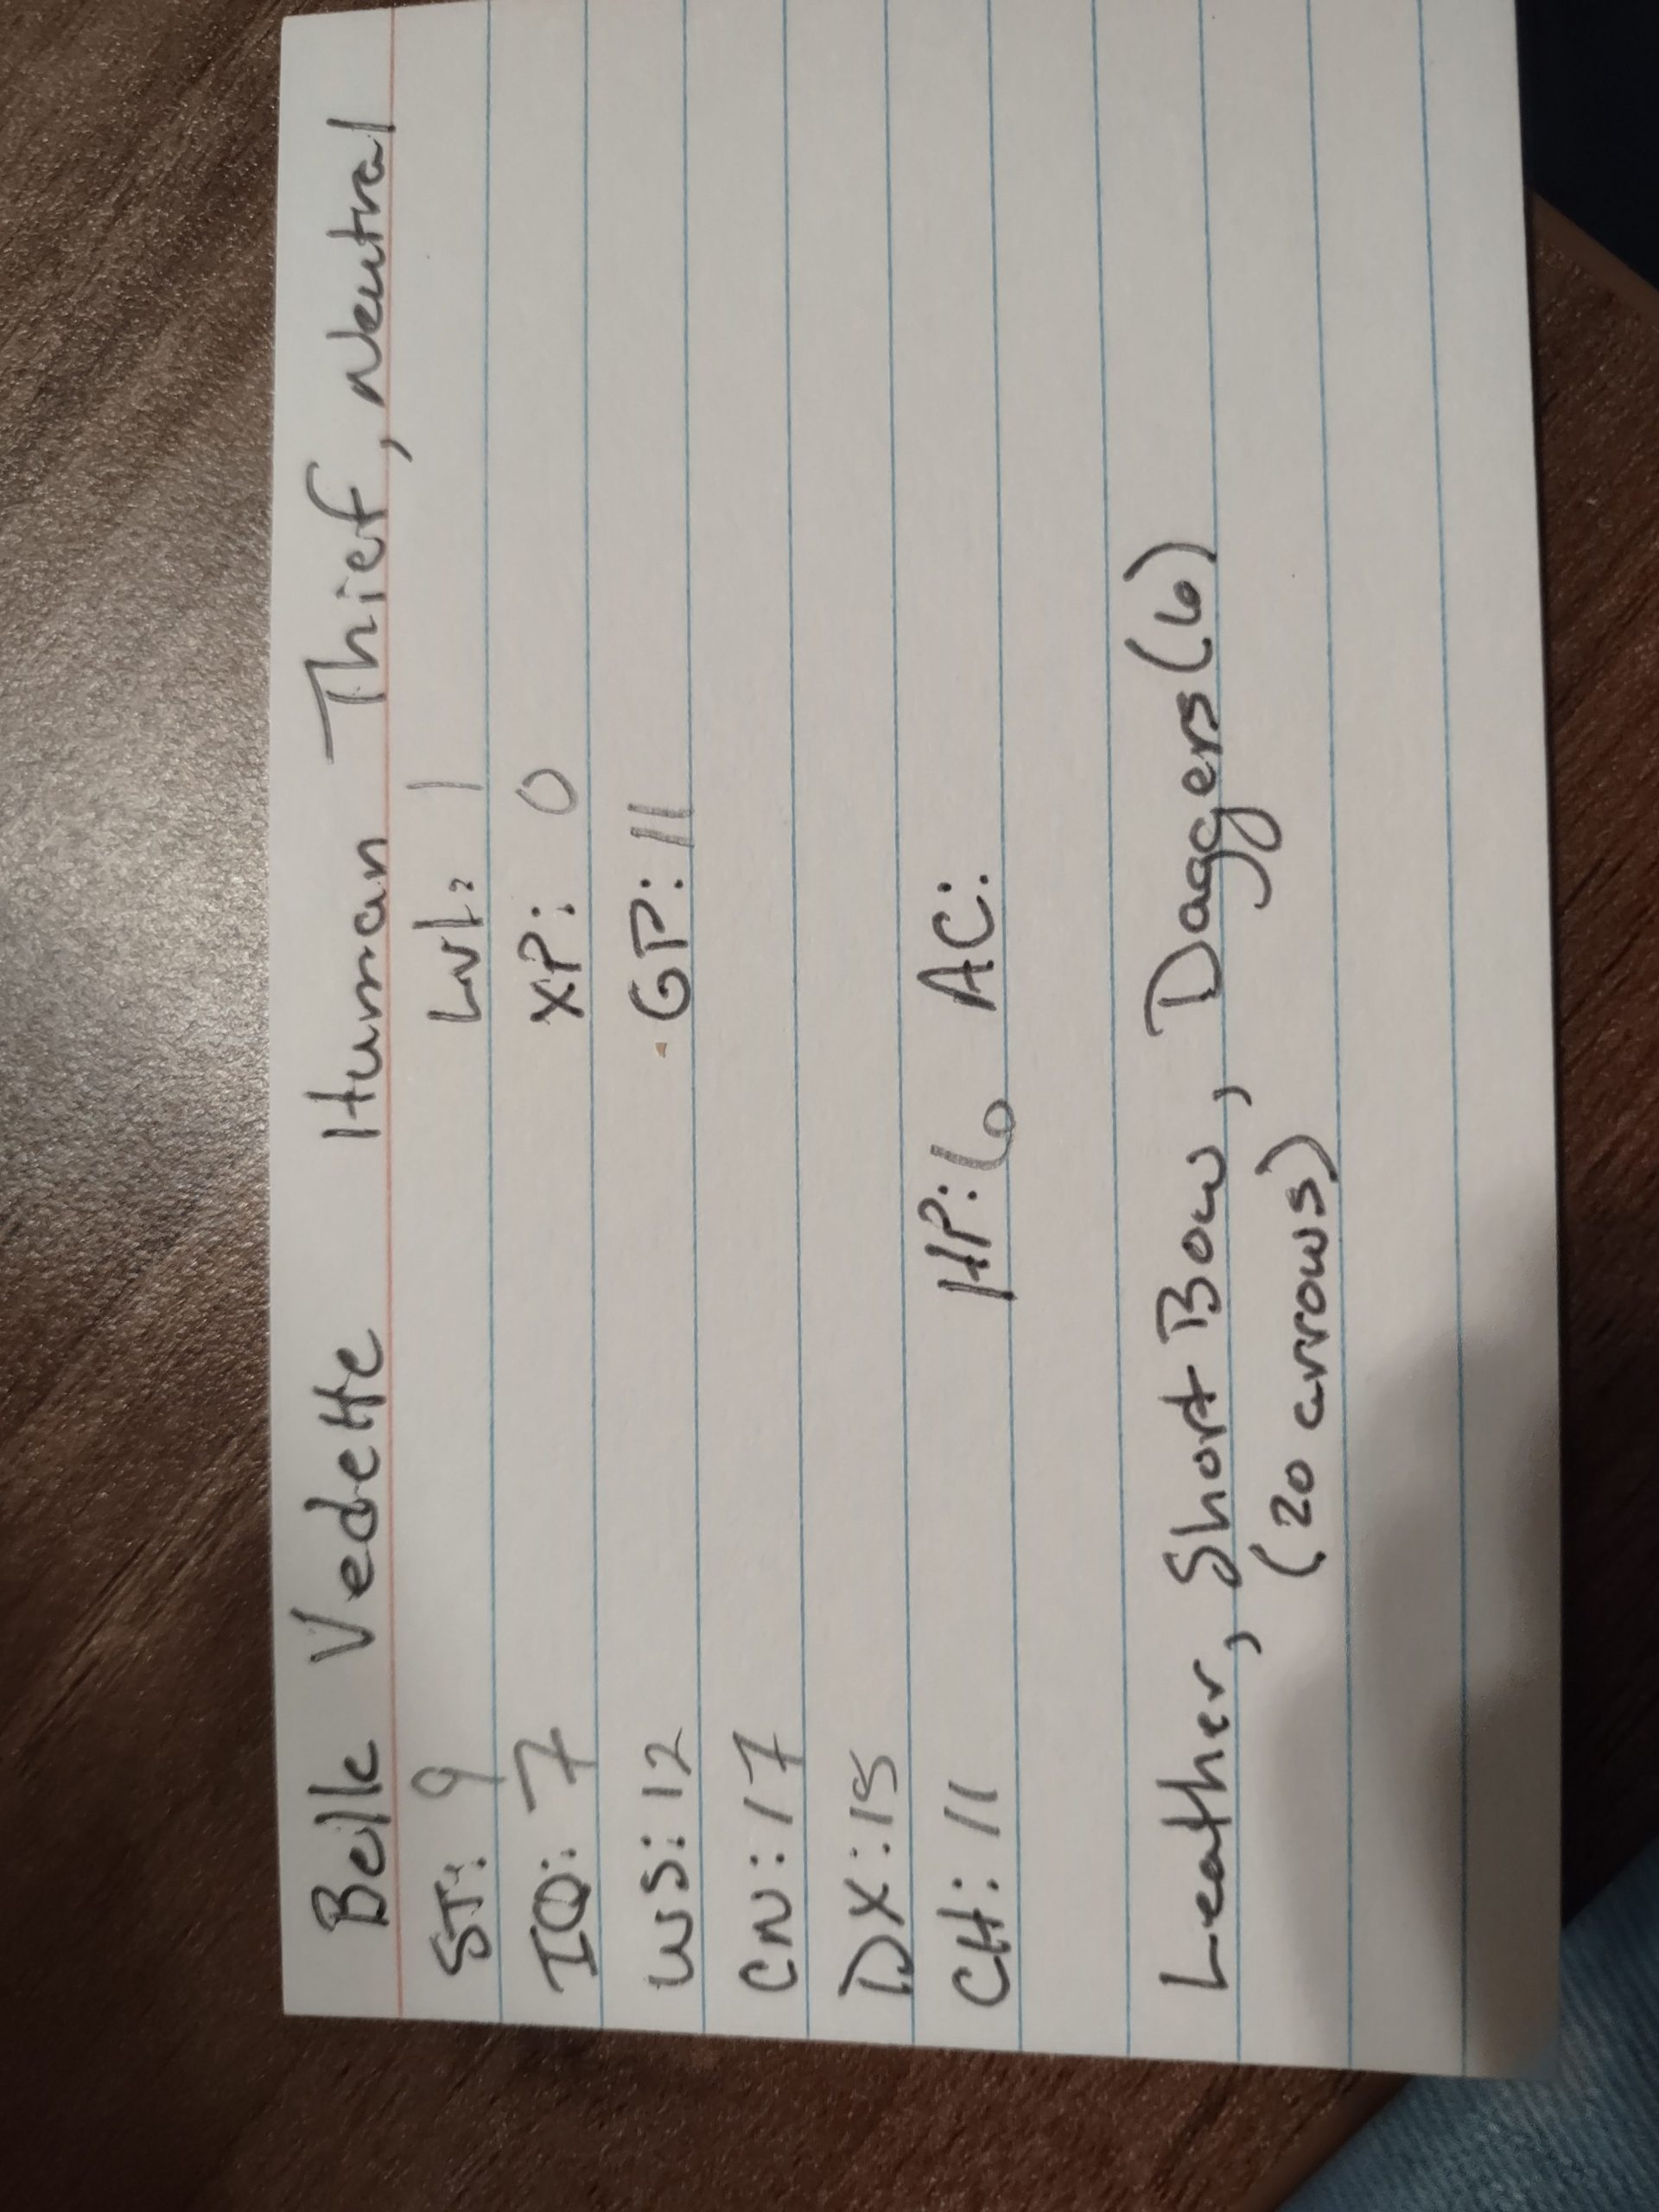 Belle Vedette Human Thief, Neutral
ST: 9 Lvl: 1
IQ: 7 XP: 0
WS: 12 GP: 11
CN: 17
DX: 15
CH: 11 HP: 6 AC:
Leather, Short Bow, Daggers (6)
(20 arrows)